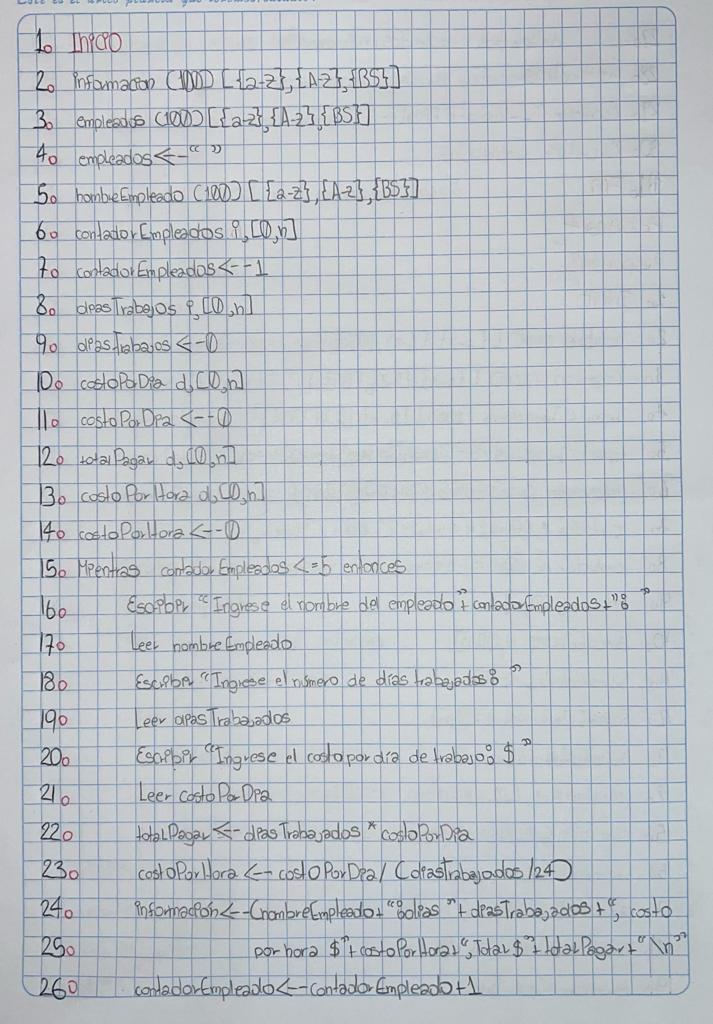 1. Inicio
2. información (100) [{a-z},{A-z},{BS}]
3. empleados (100) [{a-z},{A-z},{BS}]
4. empleados <- “ ”
5. nombreEmpleado (100) [{a-z},{A-z},{BS}]
6. contadorEmpleados i,[0,n]
7. contadorEmpleados <--1
8. díasTrabajos i,[0,n]
9. díasTrabajos <-0
10. costoPorDía d,[0,n]
11. costoPorDía <--0
12. totalPagar d,[0,n]
13. costoPorHora d,[0,n]
14. costoPorHora <--0
15. Mientras contadorEmpleados <=5 entonces
16. Escribir “Ingrese el nombre del empleado”+contadorEmpleados+“: ”
17. Leer nombreEmpleado
18. Escribir “Ingrese el número de días trabajados: ”
19. Leer díasTrabajados
20. Escribir “Ingrese el costo por día de trabajo: $ ”
21. Leer costoPorDía
22. totalPagar <-- díasTrabajados * costoPorDía
23. costoPorHora <-- costoPorDía / (díasTrabajados /24)
24. información <--(nombreEmpleado+“: días ”+díasTrabajados+“, costo
25. por hora $”+costoPorHora+“, Total $”+totalPagar+“\n”
26. contadorEmpleado <--contadorEmpleado+1